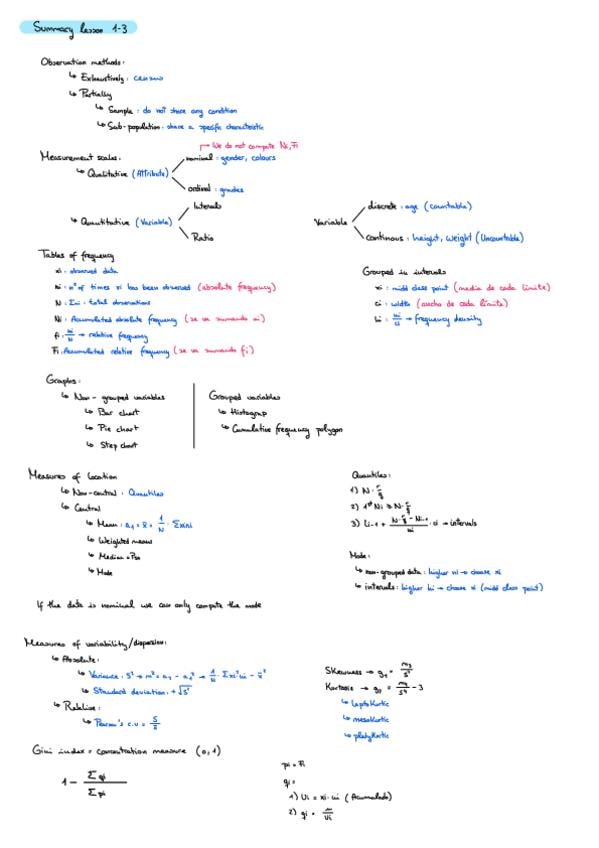 Summary lesson 1-3
Observation methods:
↳ Exhaustively: census
↳ Partially
↳ Sample: do not share any condition
↳ Sub-population: share a specific characteristic
→ We do not compute Ni, Fi
Measurement scales:
nominal: gender, colours
↳ Qualitative (Attribute)
ordinal: grades
Intervals
↳ Quantitative (Variable)
Ratio
discrete: age (countable)
Variable
continous: height, weight (Uncountable)
Tables of frequency
xi: observed data
ni: nº of times xi has been observed (absolute frequency)
N: Σni: total observations
Ni: Accumulated absolute frequency (se va sumando ni)
fi: ni/N → relative frequency
Fi: Accumulated relative frequency (se va sumando fi)
Grouped in intervals
xi: midd class point (media de cada límite)
ci: width (ancho de cada límite)
hi: ni/ci → frequency density
Graphs:
↳ Non-grouped variables
↳ Bar chart
↳ Pie chart
↳ Step chart
Grouped variables
↳ Histogram
↳ Cumulative frequency polygon
Measures of location
↳ Non-central: Quantiles
↳ Central
↳ Mean: a1 = x̄ = 1/N · Σxini
↳ Weighted mean
↳ Median =P50
↳ Mode
Quantiles:
1) N · r/q
2) 1st Ni ≥ N · r/q
3) Li-1 + (N · r/q - Ni-1)/ni · ci → intervals
Mode:
↳ non-grouped data: higher ni → choose xi
↳ intervals: higher hi → choose xi (midd class point)
If the data is nominal we can only compute the mode
Measures of variability/dispersion:
↳ Absolute:
↳ Variance: S² → m² = a2 - a1² → 1/N · Σxi²ni - x̄²
↳ Standard deviation: +√S²
↳ Relative:
↳ Pearson's c.v = S/x̄
Skewness → g1 = m3/S³
Kurtosis → g2 = m4/S4 - 3
↳ leptokurtic
↳ mesokurtic
↳ platykurtic
Gini index = concentration measure (0,1)
1 - Σqi/Σpi
pi = Fi
qi =
1) Ui = xi · ni (Acumulado)
2) qi =